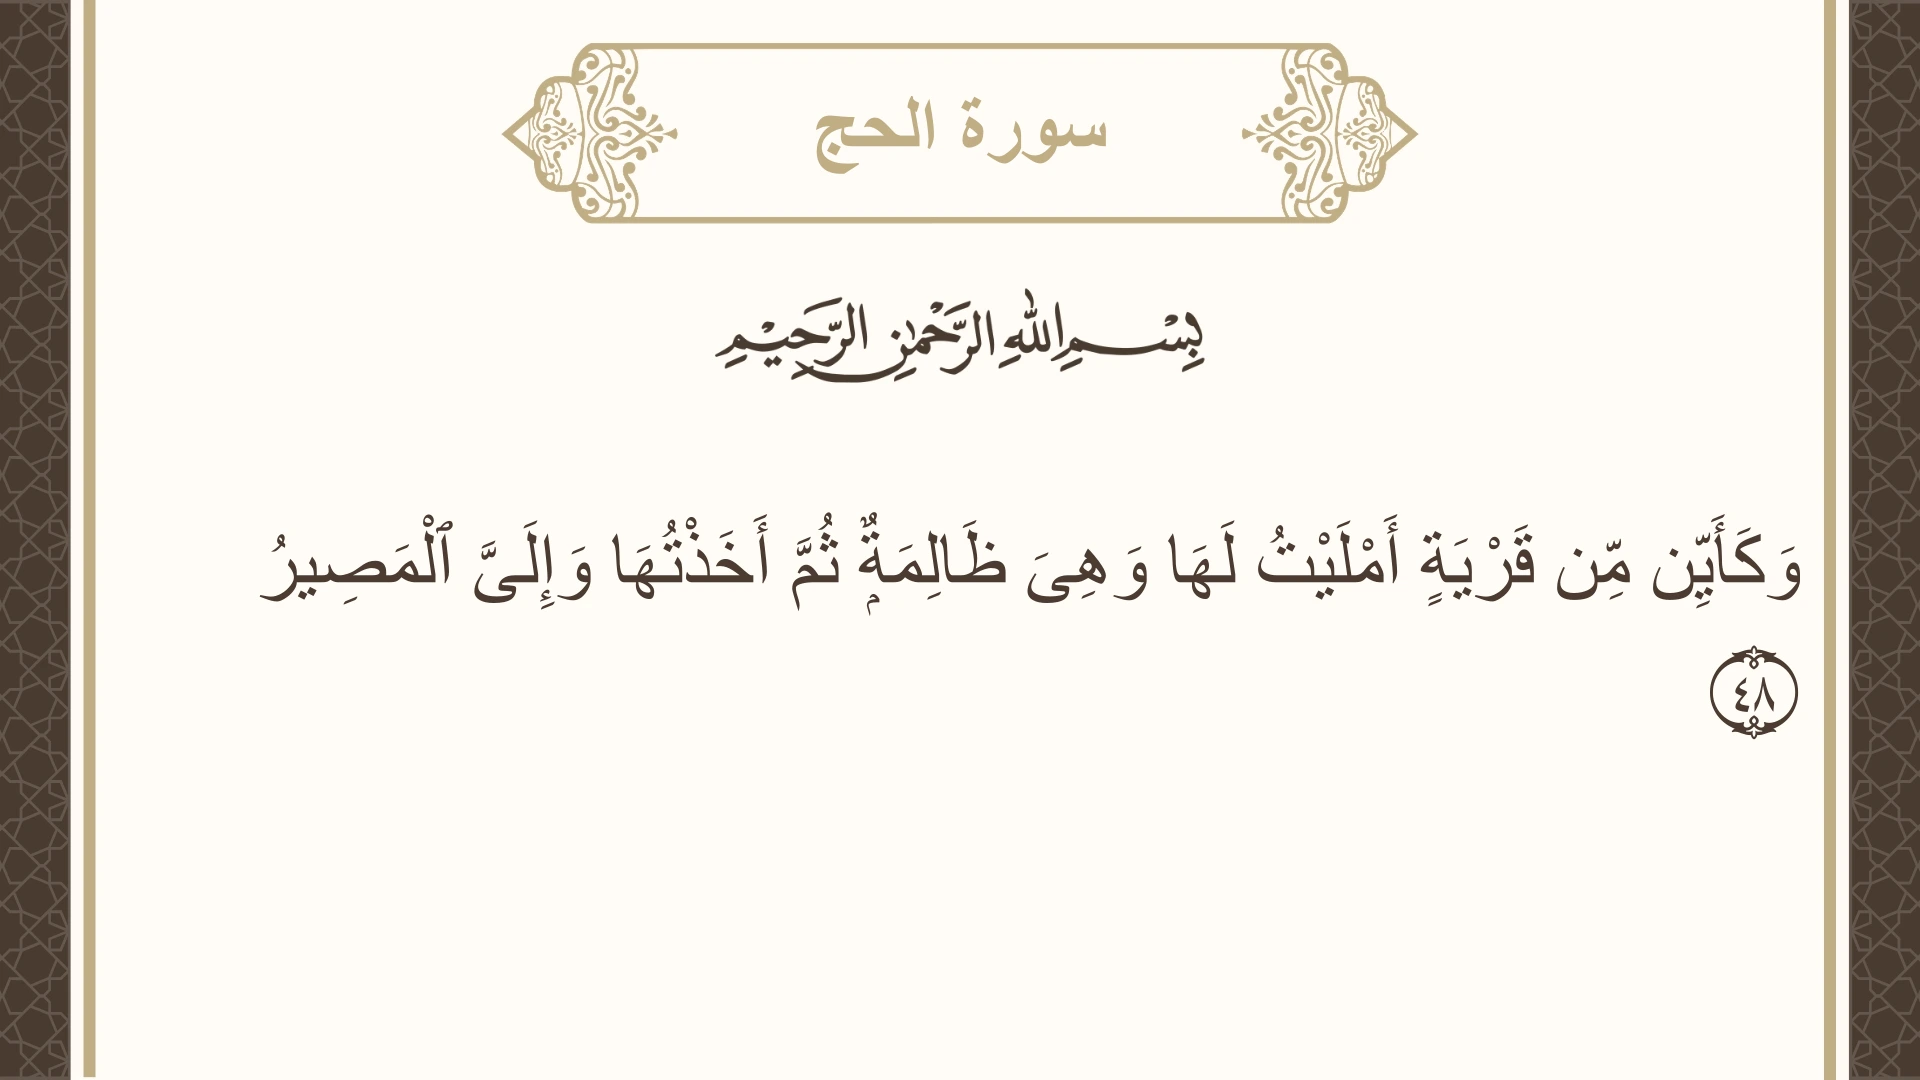 سورة الحج
بِسْمِ اللهِ الرَّحْمٰنِ الرَّحِيْمِ
وَكَأَيِّن مِّن قَرْيَةٍ أَمْلَيْتُ لَهَا وَهِىَ ظَالِمَةٌۭ ثُمَّ أَخَذْتُهَا وَإِلَىَّ ٱلْمَصِيرُ
٤٨